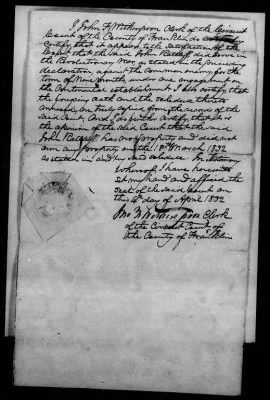 I John H Witherspoon Clerk of the Circuit
Court of the County of Franklin do
certify that it appears to the satisfaction of the
Court that the said John Ratliff did serve in
the Revolutionary War as stated in the preceding
declaration against the Common enemy for the
term of Nine months under one engagement on
the Continental establishment I also certify that
the foregoing oath and the schedule thereto
annexed are truly copied from the record of the
said Court And I do further certify that it is
the opinion of the said Court that the said
John Ratliff has no property and did not
own any property on the 18th March 1832
as stated in and by said schedule. In testimony
whereof I have hereunto
set my hand and affixed the
seal of the said Court on
this day of April 1832
Jno H Witherspoon Clerk
of the Circuit Court of
the County of Franklin